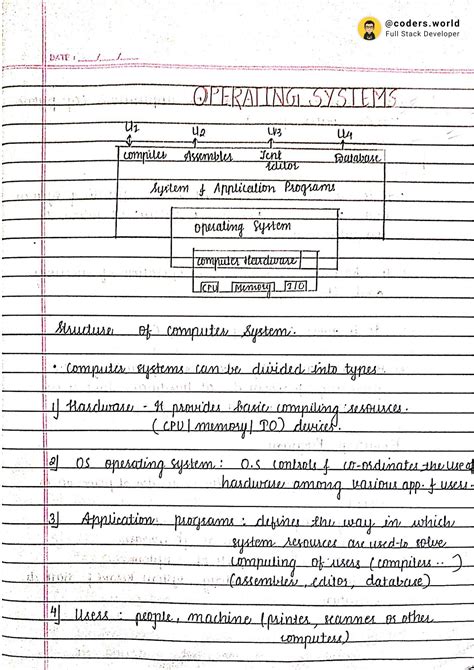 @coders.world
Full Stack Developer
DATE: __/__/__
OPERATING SYSTEMS
U1 U2 U3 U4
compiler Assembler Text Editor Database
System & Application Programs
Operating System
Computer Hardware
CPU Memory I/O
Structure of Computer System.
• Computer systems can be divided into types
1) Hardware - It provides basic compiling resources.
(CPU/memory/IO) devices.
2) OS operating system: O.S controls & co-ordinates the use of
hardware among various app. & users.
3) Application programs: defines the way in which
system resources are used to solve
computing of users (compilers..)
(assembler, editor, database)
4) Users: people, machine (printer, scanner or other
computers)